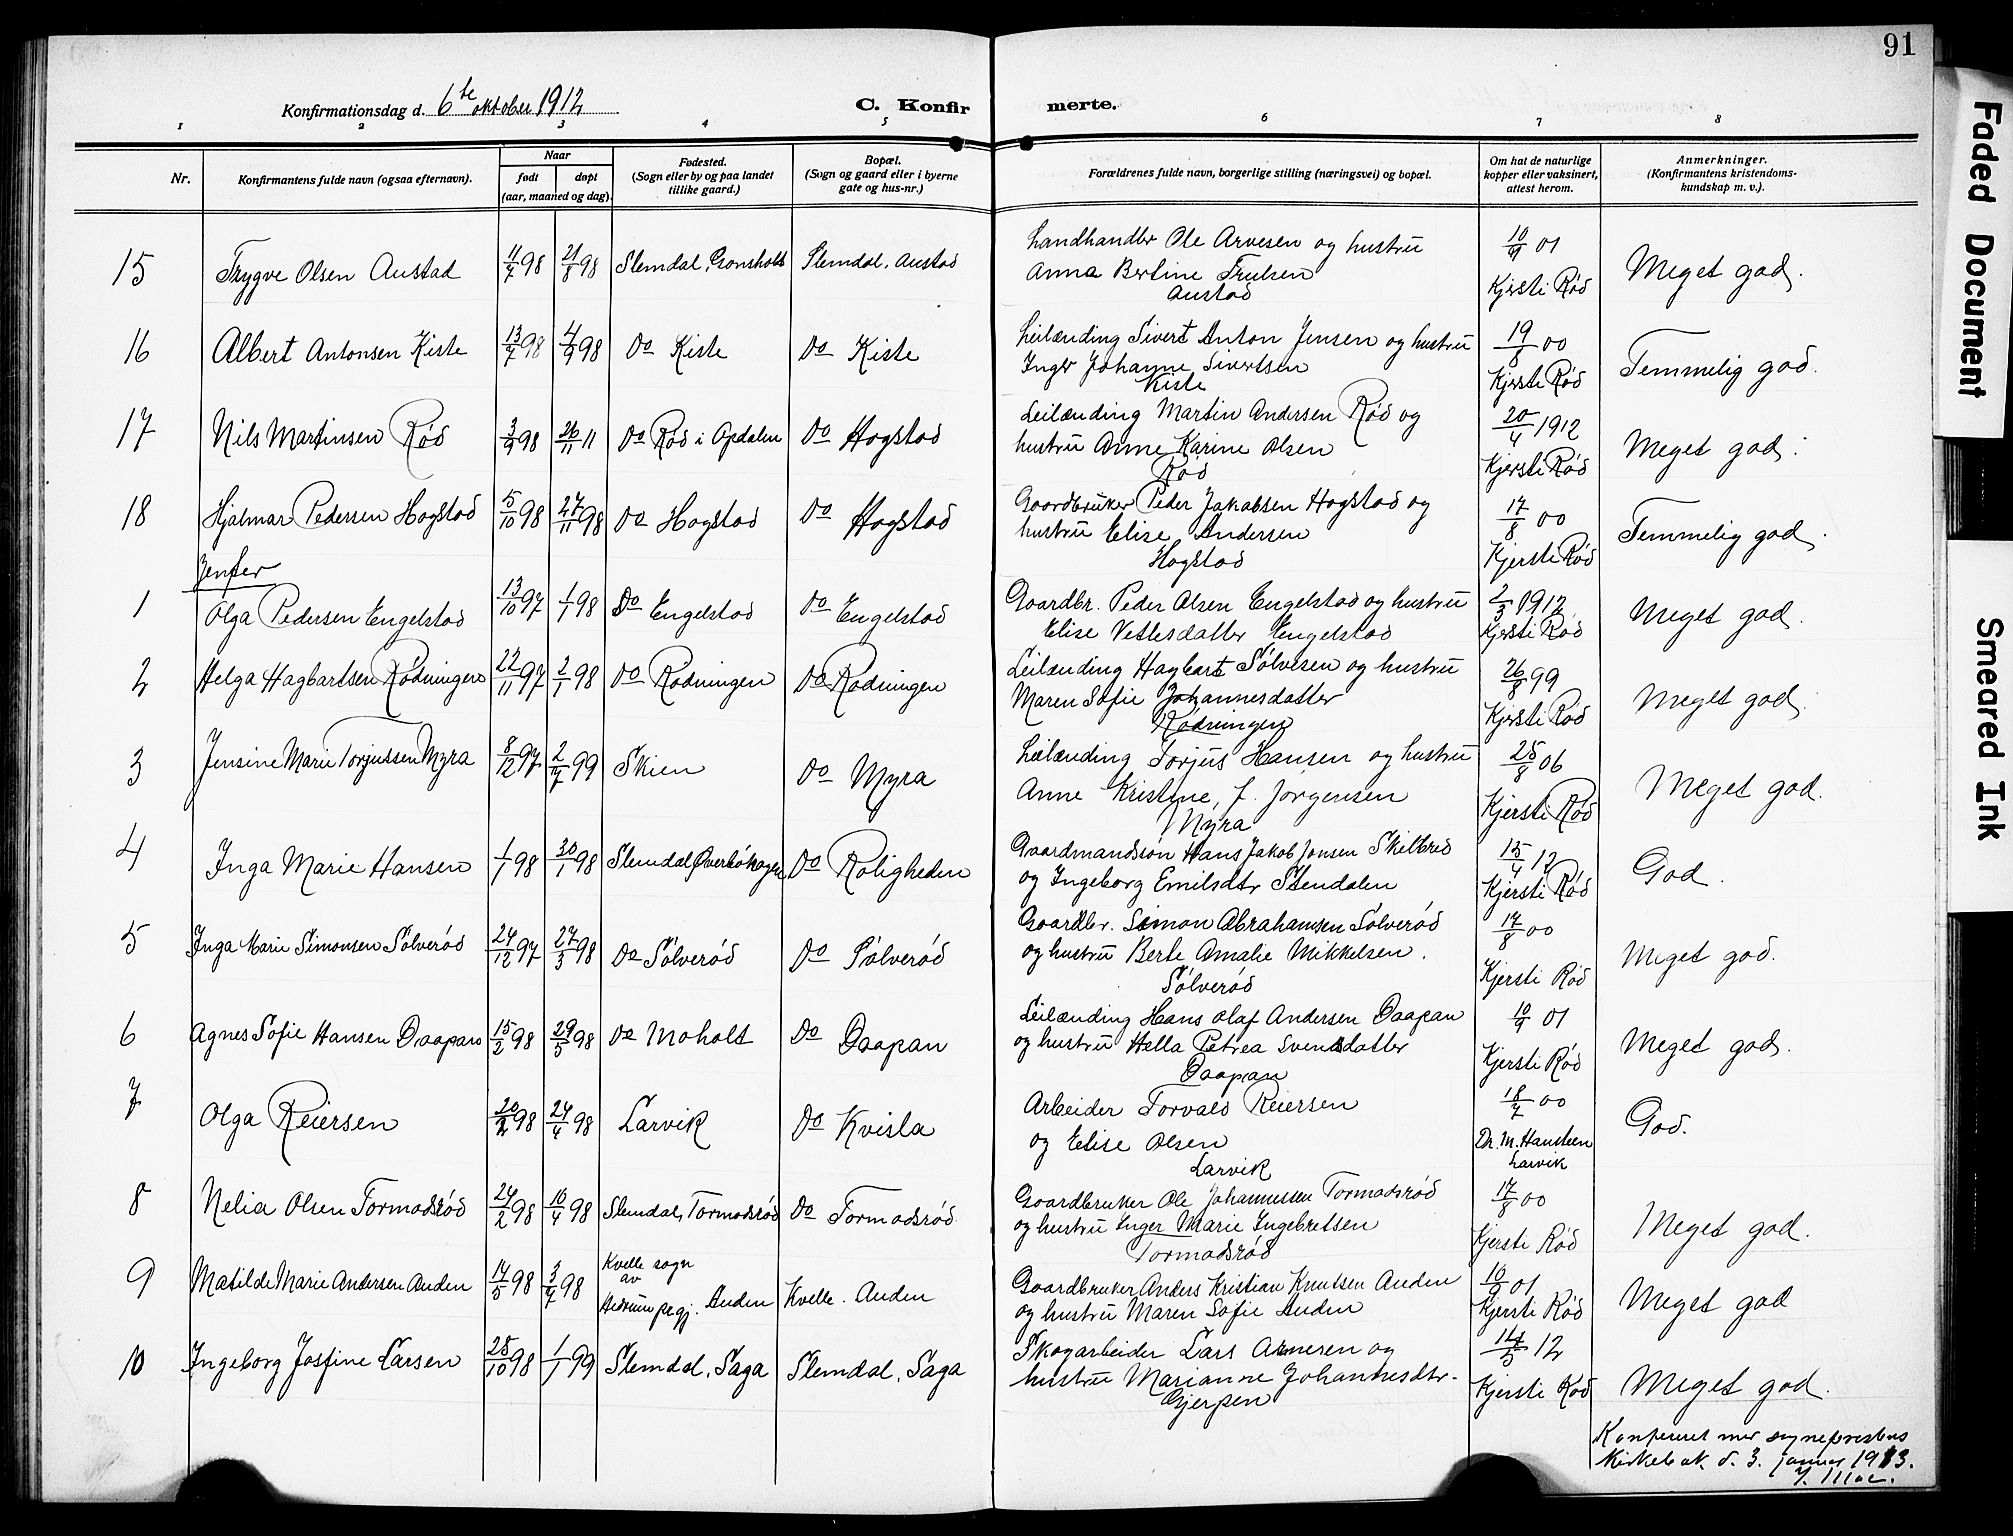 91
Konfirmationsdag d. 6te oktober 1912
C. Konfirmerte.
1 2 3 4 5 6 7 8
Nr.
Konfirmantens fulde navn (ogsaa efternavn).
Naar
født døpt
(aar, maaned og dag).
Fødested.
(Sogn eller by og paa landet
tillike gaard.)
Bopæl.
(Sogn og gaard eller i byerne
gate og hus-nr.)
Forældrenes fulde navn, borgerlige stilling (næringsvei) og bopæl.
Om hat de naturlige
kopper eller vaksinert,
attest herom.
Anmerkninger.
(Konfirmantens kristendoms-
kundskap m. v.).
15 Trygve Olsen Austad 11/7 98 21/8 98 Slemdal, Gonsholt Slemdal, Austad
Landhandler Ole Arvesen og hustru
Anna Bertine Trulsen
Austad
10/9 01
Kjersti Rød
Meget god.
16 Albert Antonsen Kiste 13/7 98 4/9 98 Do Kiste Do Kiste
Leilænding Sivert Anton Jensen og hustru
Inger Johanne Sivertsen
Kiste
19/8 00
Kjersti Rød
Temmelig god.
17 Nils Martinsen Rød 3/9 98 26/11 11 Do Rød i Opdalen Do Hogstad
Leilænding Martin Andersen Rød og
hustru Anne Karine Olsen
Rød
20/4 1912
Kjersti Rød
Meget god.
18 Hjalmar Pedersen Hogstad 5/10 98 27/11 98 Do Hogstad Do Hogstad
Gaardbruker Peder Jakobsen Hogstad og
hustru Elise Andersen
Hogstad
17/8 00
Kjersti Rød
Temmelig god.
Jenter
1 Olga Pedersen Engelstad 13/10 97 1/1 98 Do Engelstad Do Engelstad
Gaardbr. Peder Olsen Engelstad og hustru
Elise Vetlesdatter Engelstad
2/3 1912
Kjersti Rød
Meget god.
2 Helga Hagbartsen Rødningen 22/11 97 2/1 98 Do Rødningen Do Rødningen
Leilænding Hagbart Sølvesen og hustru
Maren Sofie Johannesdatter
Rødningen
26/8 99
Kjersti Rød
Meget god.
3 Jensine Marie Torjussen Myra 8/12 97 2/7 99 Skien Do Myra
Leilænding Torjus Hansen og hustru
Anne Kristine, f. Jørgensen
Myra
25/8 06
Kjersti Rød
Meget god.
4 Inga Marie Hansen 1/1 98 30/1 98 Slemdal Do Roligheden
Gaardmandssøn Hans Jakob Jonsen Skilbred
og Ingeborg Emilsdtr Stendalen
15/4 12
Kjersti Rød
God.
5 Inga Marie Simonsen Sølverød 24/12 97 27/3 98 Do Sølverød Do Sølverød
Gaardbr. Simon Abrahamsen Sølverød
og hustru Berte Amalie Mikkelsen.
Sølverød
17/8 00
Kjersti Rød
Meget god.
6 Agnes Sofie Hansen Daapan 15/2 98 29/5 98 Do Moholt Do Daapan
Leilænding Hans Olaf Andersen Daapan
og hustru Hella Petrea Svensdatter
Daapan
10/9 01
Kjersti Rød
Meget god.
7 Olga Reiersen 20/2 98 24/4 98 Larvik Do Kvisla
Arbeider Torvald Reiersen
og Elise Olsen
Larvik
18/7 00
Dr. M. Hansteen
Larvik
God.
8 Nelia Olsen Tormodsrød 24/2 98 10/4 98 Slemdal, Tormodsrød Do Tormodsrød
Gaardbruker Ole Johannessen Tormodsrød
og hustru Inger Marie Ingebretsen
Tormodsrød
17/8 00
Kjersti Rød
Meget god.
9 Matilde Marie Andersen Auden 14/5 98 3/7 98 Kvelle sogn
av
Hedrum pgj. Auden Kvelle. Auden
Gaardbruker Anders Kristian Knutsen Auden
og hustru Maren Sofie Auden
10/9 01
Kjersti Rød
Meget god
10 Ingeborg Josfine Larsen 28/10 98 1/1 99 Slemdal, Saga Slemdal, Saga
Skogarbeider Lars Arnesen og
hustru Marianne Johannesdtr.
Gjerpen
14/5 12
Kjersti Rød
Meget god.
Konferert med sogneprestens
kirkebok d. 3. januar 1913.
J. Moe.
Faded Document
Smeared Ink